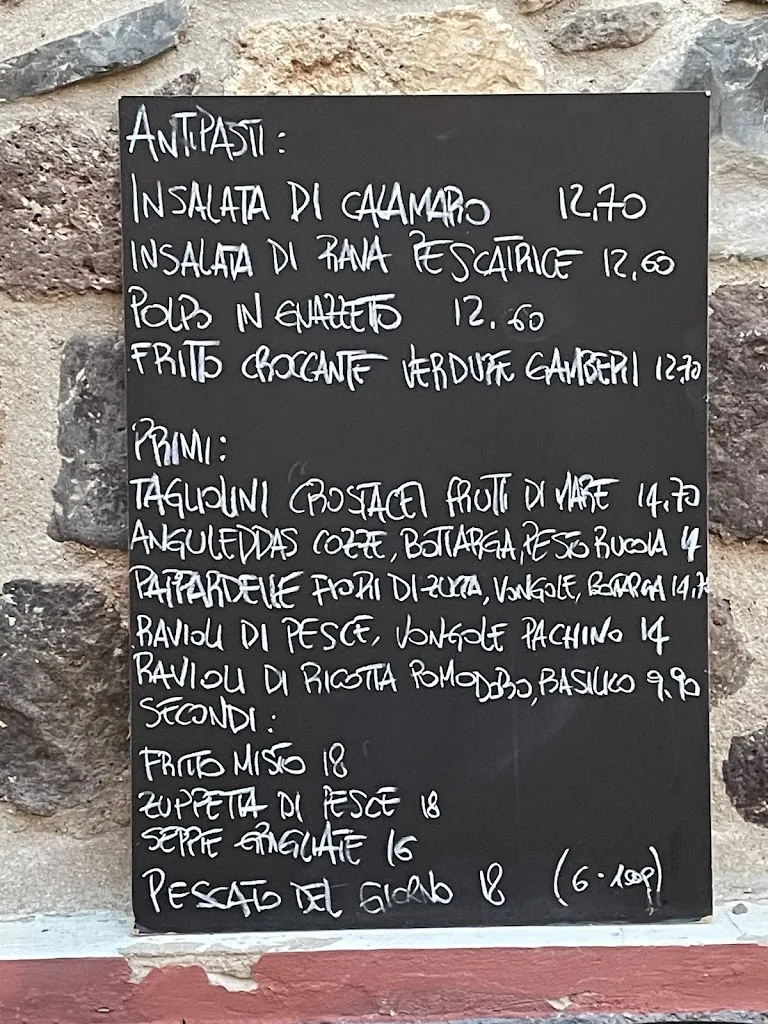 ANTIPASTI:
INSALATA DI CALAMARO 12,70
INSALATA DI RANA PESCATRICE 12,60
POLPO IN GUAZZETTO 12.60
FRITTO CROCCANTE VERDURE GAMBERI 12,70
PRIMI:
TAGLIOLINI CROSTACEI FRUTTI DI MARE 14,70
ANGULEDDAS COZZE, BOTTARGA, PESTO RUCOLA 14
PAPPARDELLE FIORI DI ZUCCA, VONGOLE, BOTTARGA 14,70
RAVIOLI DI PESCE, VONGOLE PACHINO 14
RAVIOLI DI RICOTTA POMODORO, BASILICO 9.90
SECONDI:
FRITTO MISTO 18
ZUPPETTA DI PESCE 18
SEPPIE GRIGLIATE 16
PESCATO DEL GIORNO 18 (6·100gr)